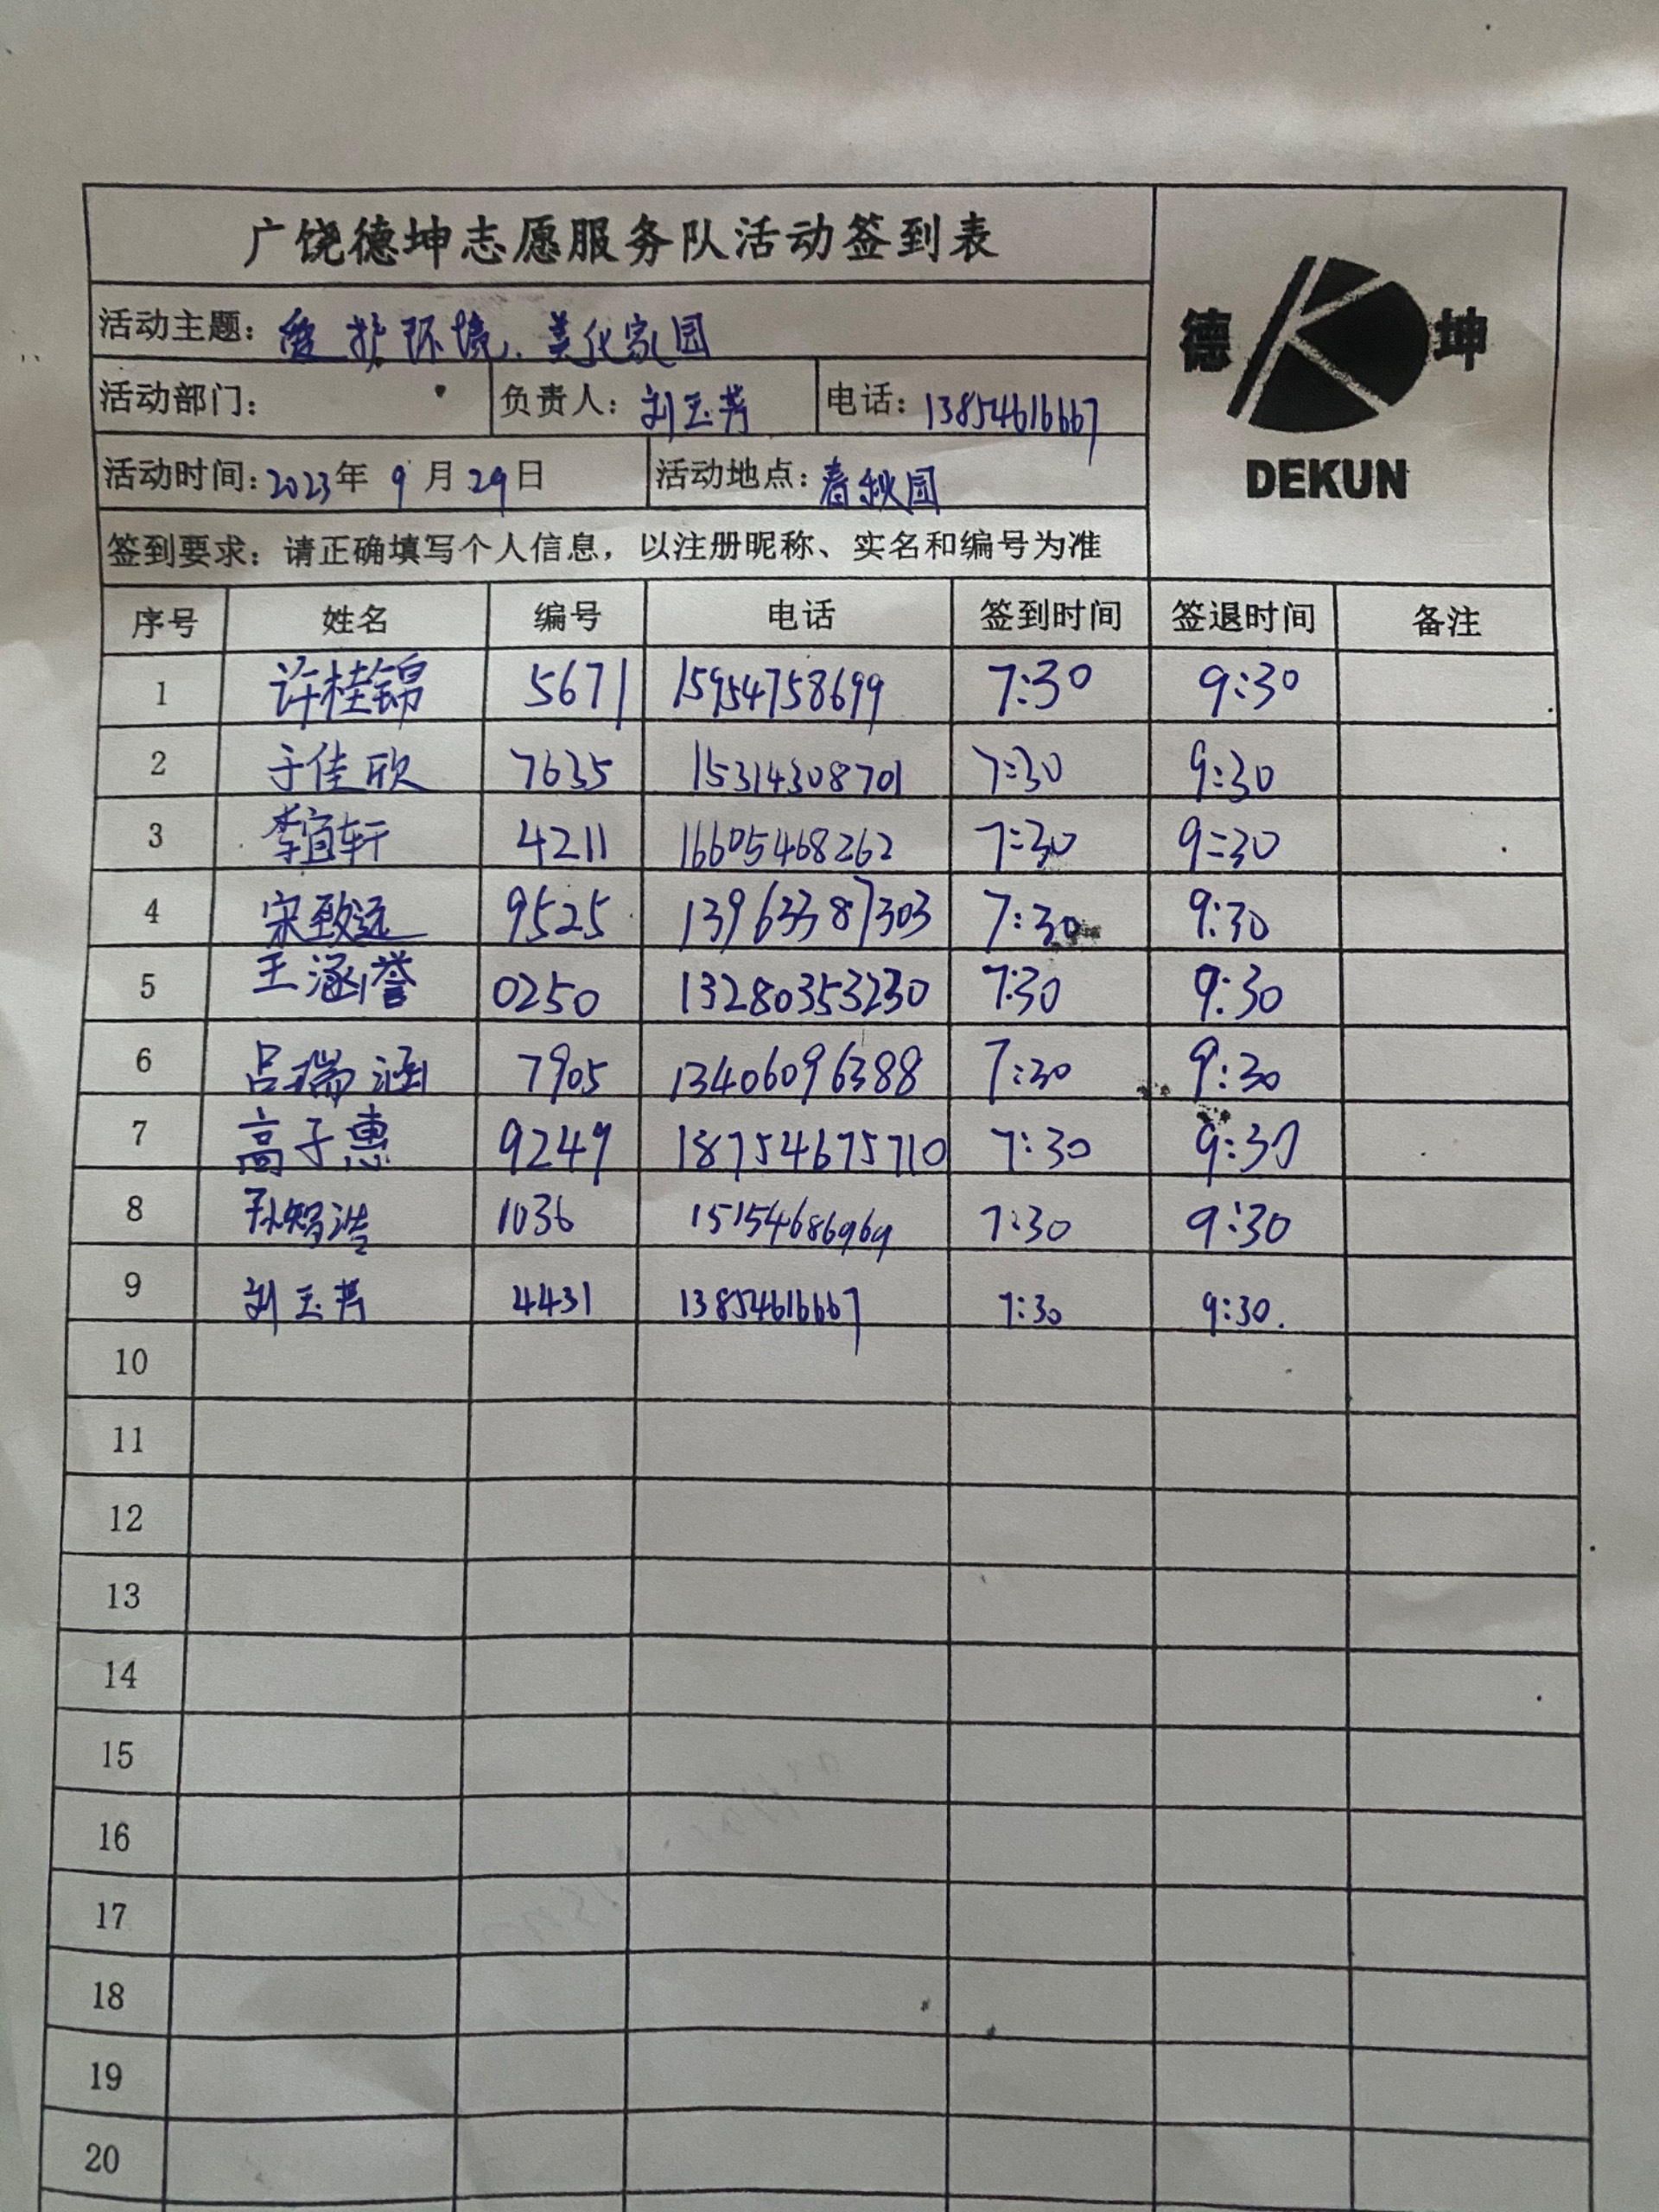 广饶德坤志愿服务队活动签到表
德 坤
DEKUN
活动主题：爱护环境、美化家园
活动部门： 负责人：刘玉芳 电话：13854616667
活动时间：2023年 9 月 29 日 活动地点：春秋园
签到要求：请正确填写个人信息，以注册昵称、实名和编号为准
序号 姓名 编号 电话 签到时间 签退时间 备注
1 许桂锦 5671 15954758699 7:30 9:30
2 于佳欣 7635 15314308701 7:30 9:30
3 李宜轩 4211 16605468262 7:30 9:30
4 宋致远 9525 13963387303 7:30 9:30
5 王涵誉 0250 13280353230 7:30 9:30
6 吕瑞涵 7905 13406096388 7:30 9:30
7 高子惠 9249 18754675710 7:30 9:30
8 孙智浩 1036 15154686969 7:30 9:30
9 刘玉芳 4431 13854616667 7:30 9:30.
10
11
12
13
14
15
16
17
18
19
20